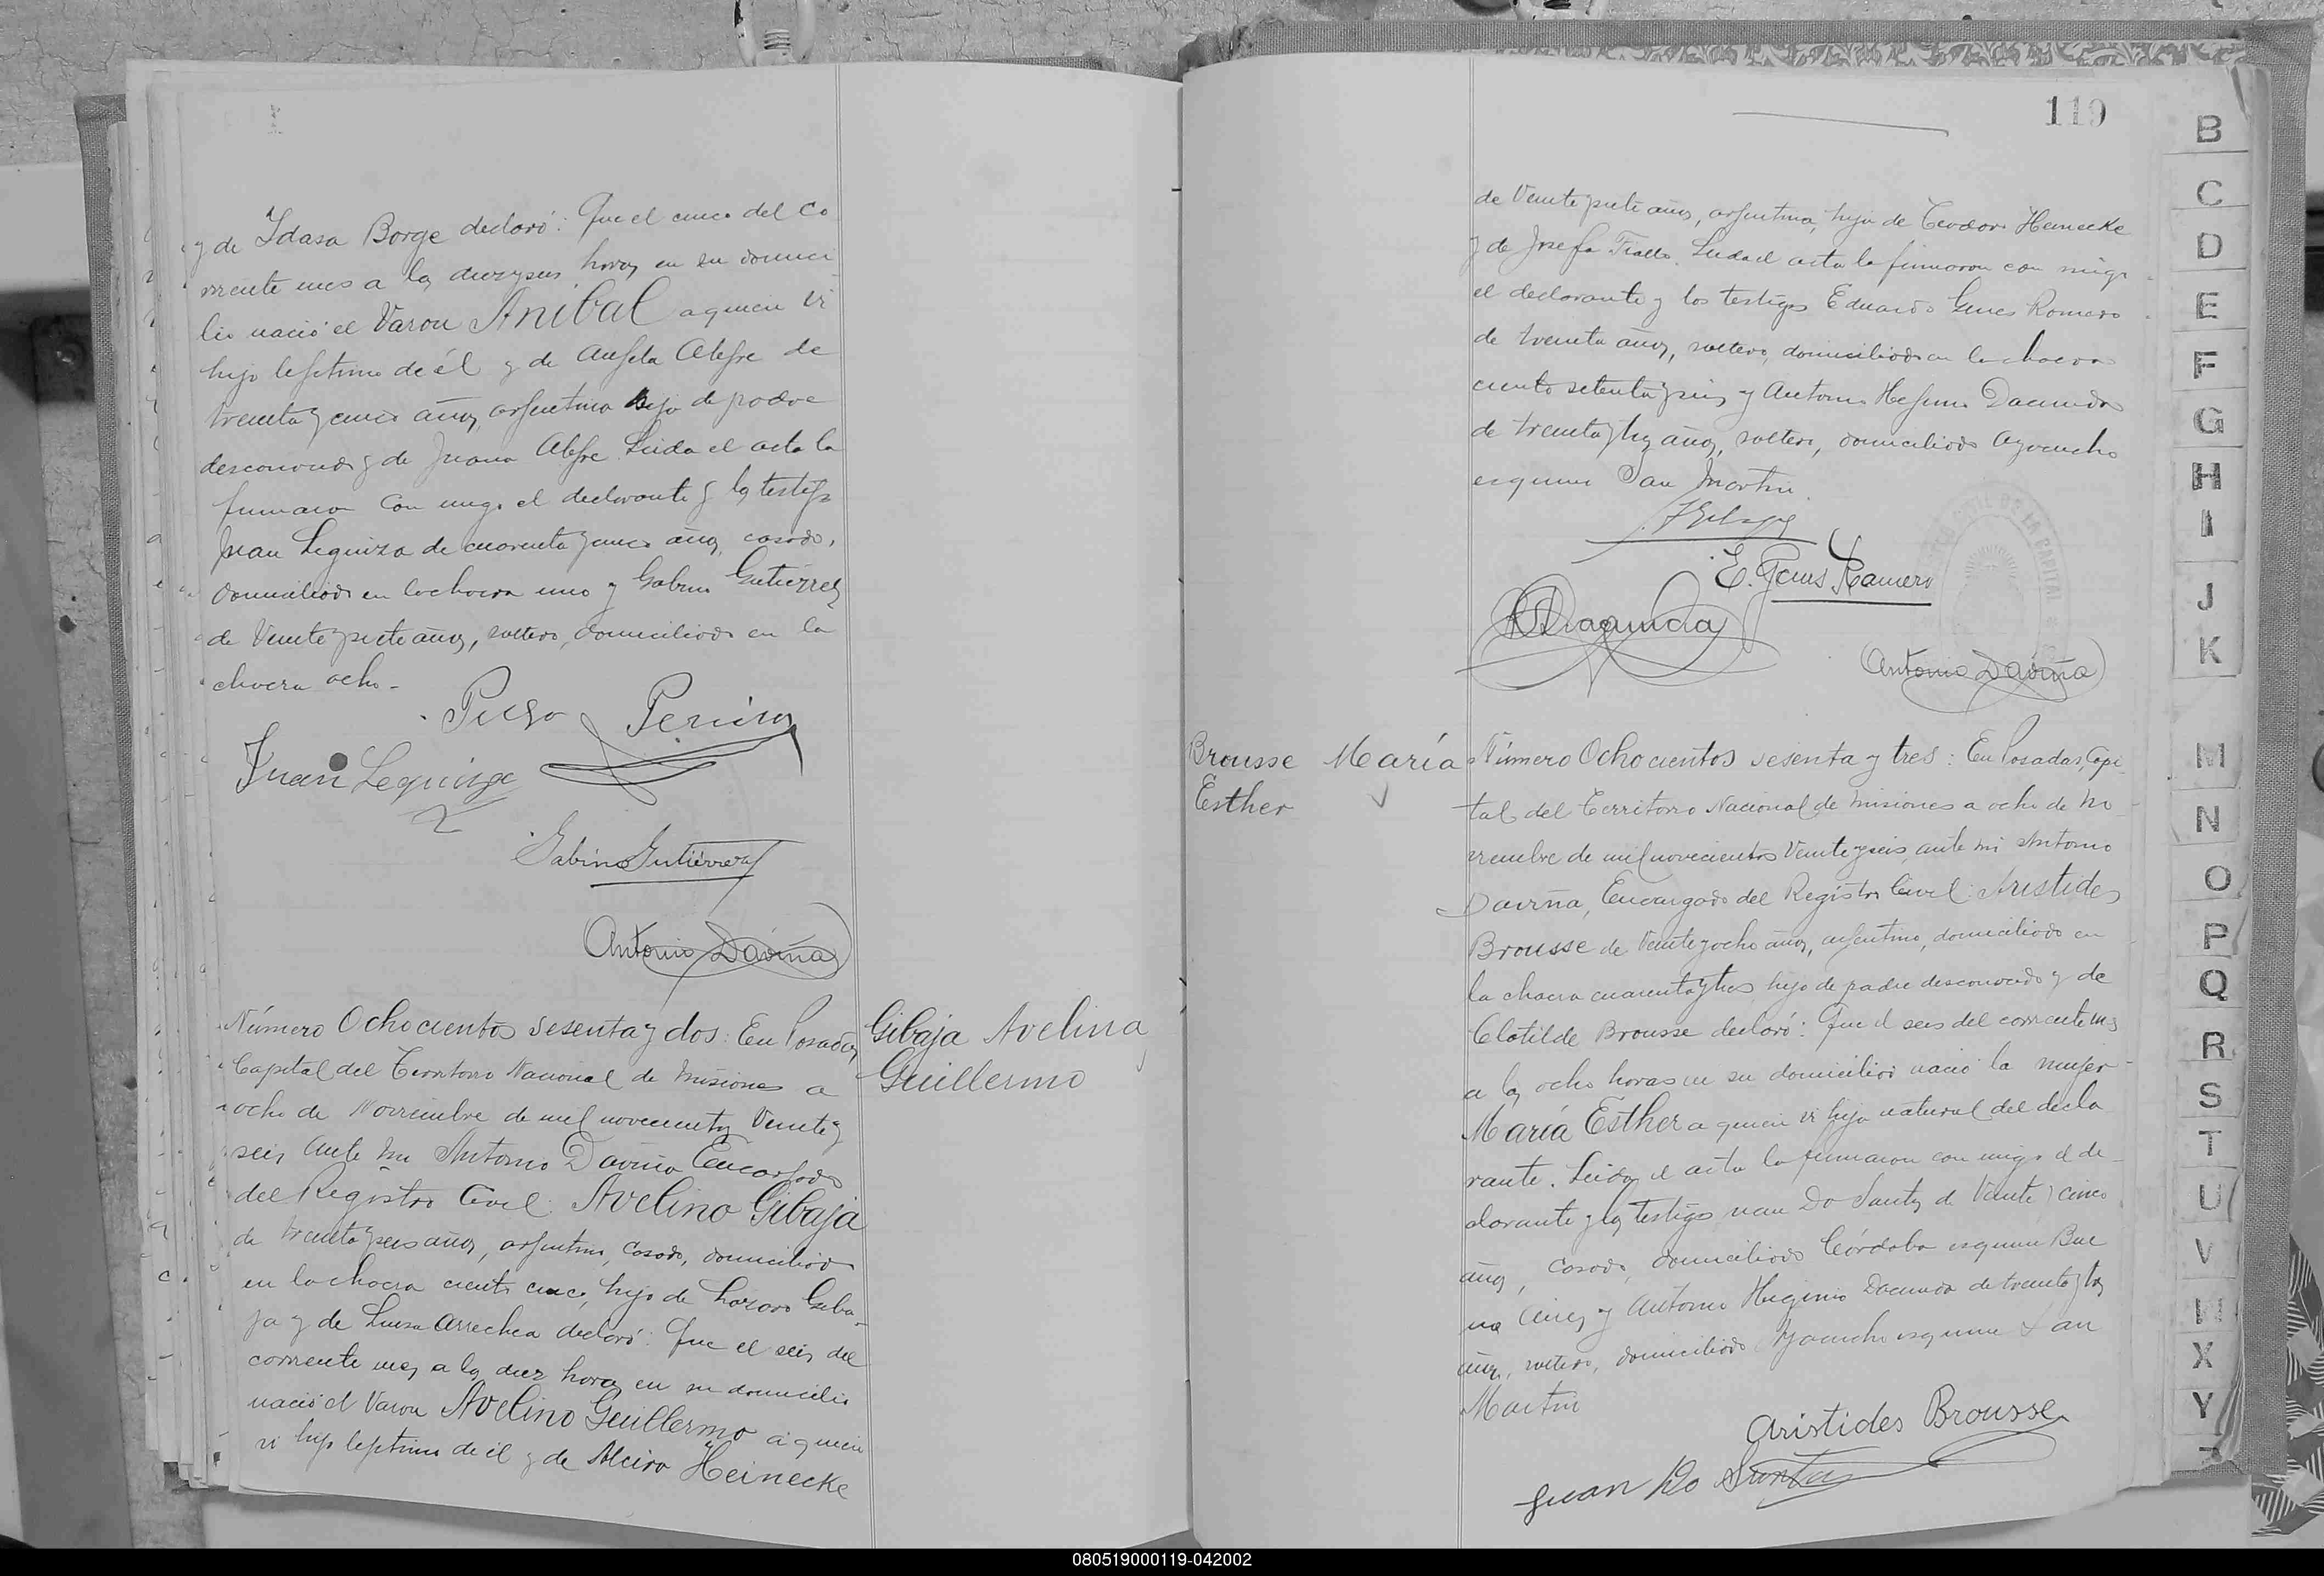 y de Ydasa Borge declaró: Que el cinco del co
rriente mes a las diez y seis horas en su domici
lio nació el Varon Anibal a quien vi
hijo lejítimo de él y de Anjela Alegre de
treinta y cinco años, arjentina hija de padre
desconocido y de Juana Alegre. Leida el acta la
firmaron con migo el declarante y los testigos
Juan Leguiza de cuarenta y cinco años, casado,
domiciliado en la chacra uno y Sabino Gutierrez
de Veinte y siete años, soltero, domiciliado en la
chacra ocho -
Juan Leguiza
Sabino Gutierrez
Antonio Daviña
Número Ochocientos sesenta y dos: En Posadas,
Capital del Territorio Nacional de Misiones a
ocho de Noviembre de mil novecientos Veinte y
seis ante mi Antonio Daviña Encargado
del Registro Civil: Avelino Gibaja
de treinta y seis años, arjentino, casado, domiciliado
en la chacra ciento cinco, hijo de Lázaro Giba-
ja y de Luisa Arrechea declaró: Que el seis del
corriente mes a las diez horas en su domicilio
nació el Varon Avelino Guillermo a quien
vi hijo lejítimo de él y de Alcira Heinecke
Gibaja Avelina
Guillermo
119
de Veinte y siete años, arjentina, hija de Teodoro Heinecke
y de Josefa Leida el acta la firmaron con migo
el declarante y los testigos Eduardo Romero
de treinta años, soltero, domiciliado en la chacra
ciento setenta y seis y Antonio Hejinio Dacunda
de treinta y tres años, soltero, domiciliado Ayacucho
esquina San Martin.
E. Romero
Dacunda
Antonio Daviña
Brousse María
Esther
Número Ochocientos sesenta y tres: En Posadas, Capi-
tal del Territorio Nacional de Misiones a ocho de No-
viembre de mil novecientos Veinte y seis, ante mi Antonio
Daviña, Encargado del Registro Civil: Aristides
Brousse de Veinte y ocho años, arjentino, domiciliado en
la chacra cuarenta y tres hijo de padre desconocido y de
Clotilde Brousse declaró: Que el seis del corriente mes
a las ocho horas en su domicilio nació la mujer
María Esther a quien vi hija natural del decla
rante. Leida el acta la firmaron con migo el de-
clarante y los testigos Juan Do Santos de Veinte y cinco
años, casado, domiciliado Córdoba esquina Bue
nos Aires y Antonio Higinio Dacunda de treinta y tres
años, soltero, domiciliado Ayacucho esquina San
Martin
Aristides Brousse
Juan Do Santos
B
C
D
E
F
G
H
I
J
K
M
N
O
P
Q
R
S
T
U
V
W
X
Y
Z
080519000119-042002